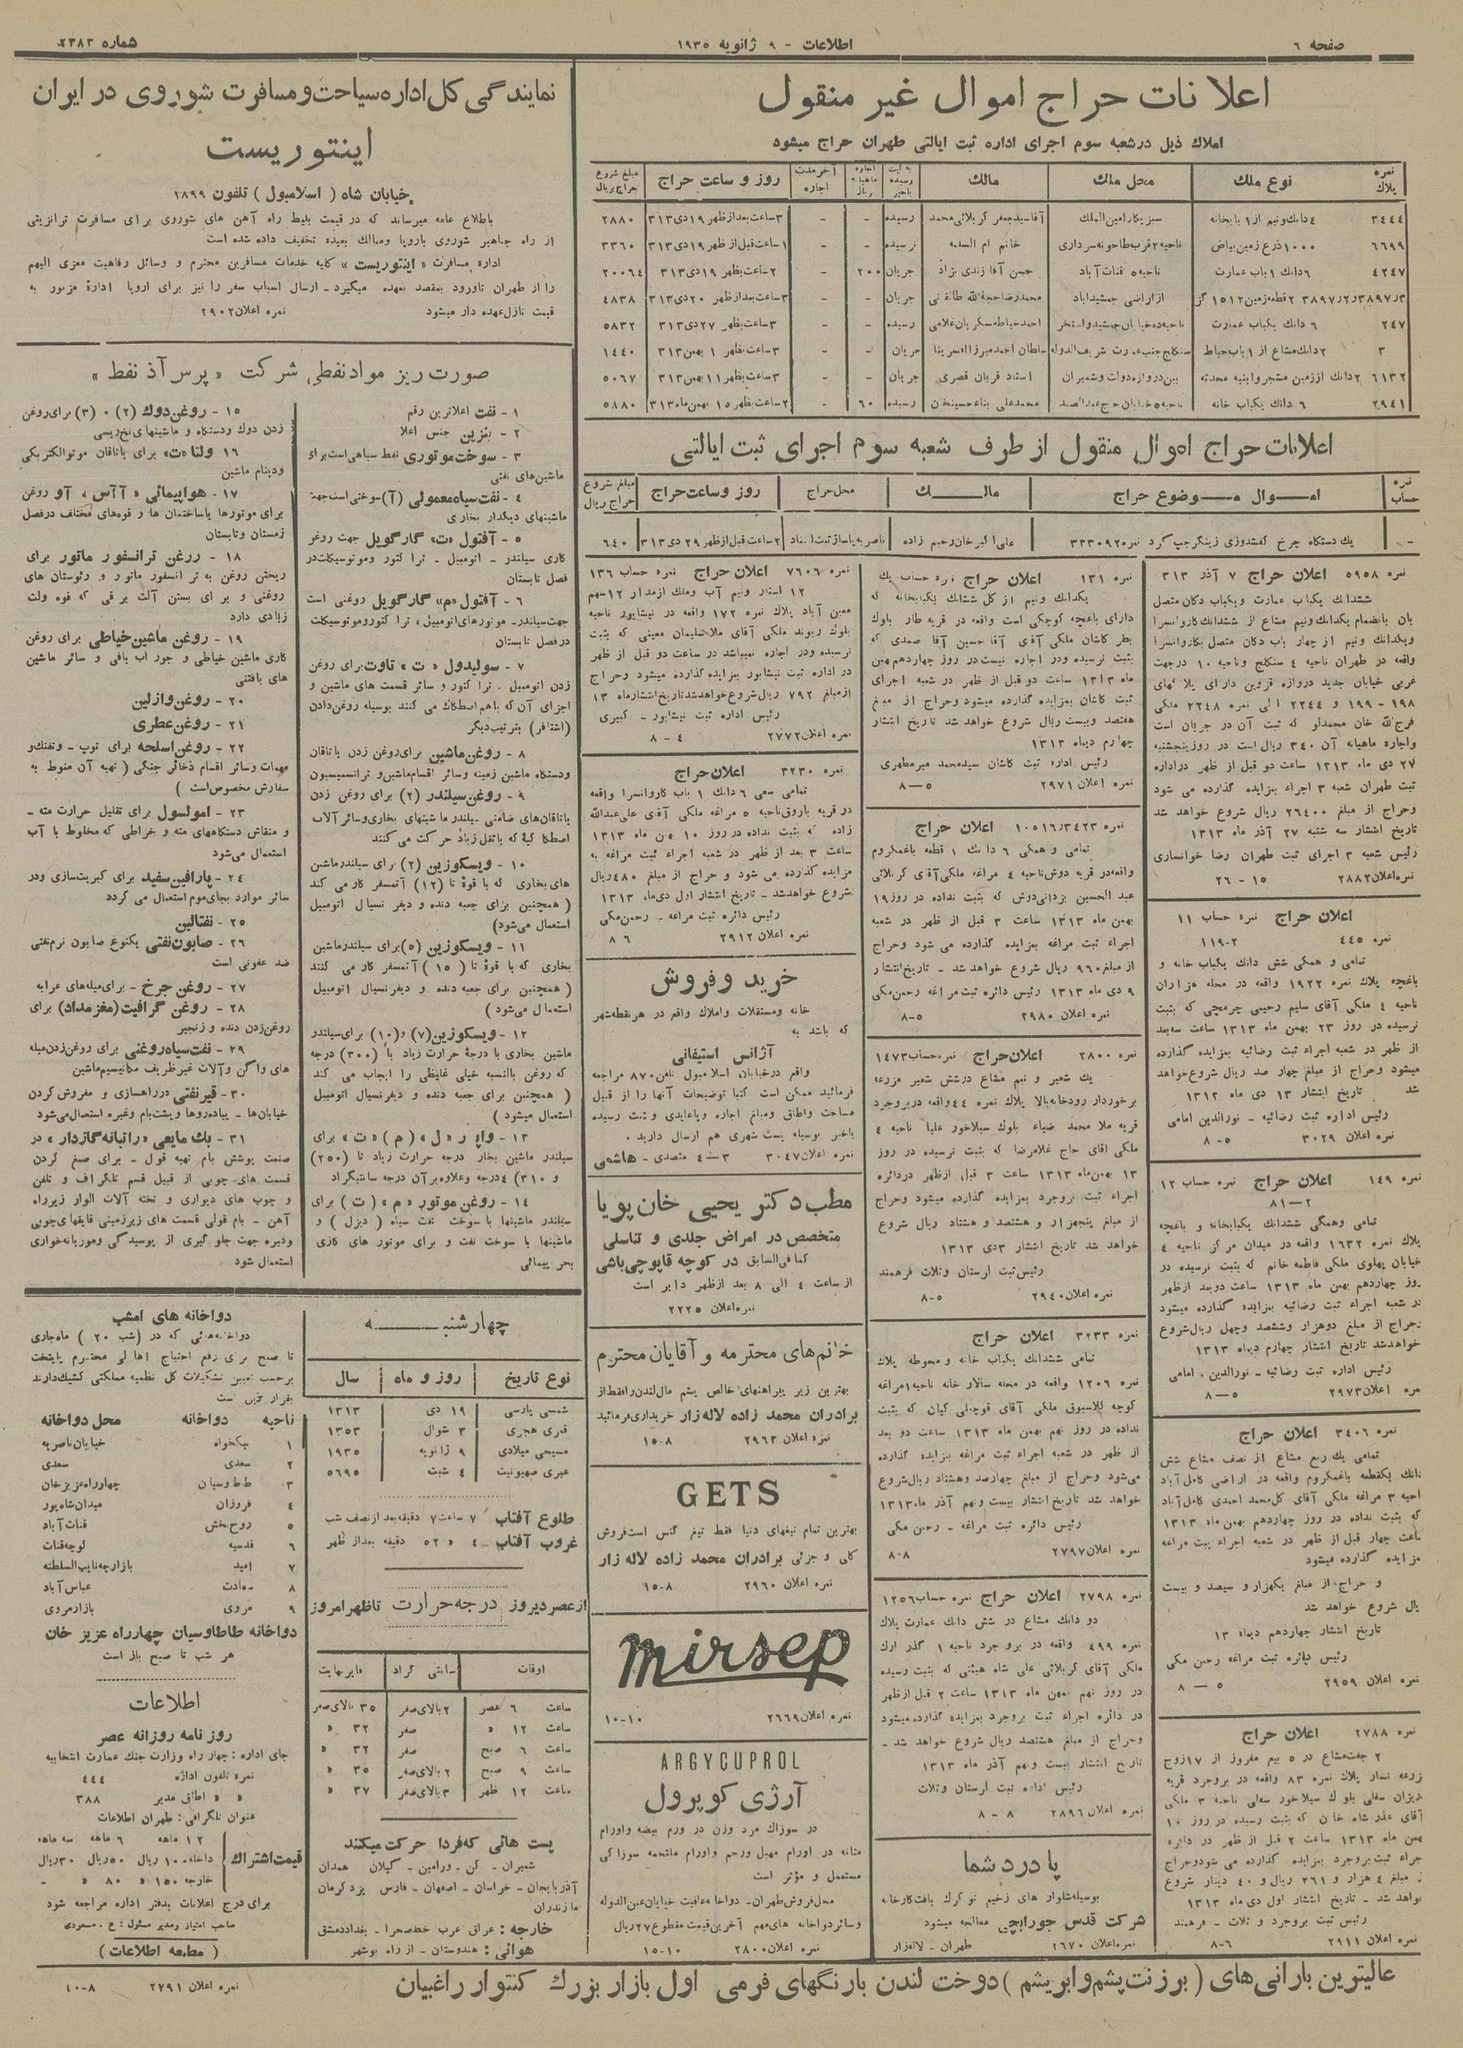 صفحه ۶
اطلاعات - ۹ ژانویه ۱۹۳۵
شماره ۲۳۸۳
اعلانات حراج اموال غیر منقول
املاك ذیل در شعبه سوم اجرای اداره ثبت ایالتی طهران حراج میشود
نمره پلاك نوع ملك محل ملك مالك اجاره ماهیانه ریال آخر مدت اجاره روز و ساعت حراج مبلغ شروع بحراج بریال
۳۴۴۴ ۴ دانك و نیم از ۱ باب خانه سبزیکار امین الملك آقا سید جعفر کربلائی محمد رسیده - - ۳ ساعت بعد از ظهر ۱۹ دی ۳۱۳ ۲۸۸۰
۶۶۹۹ ۱۰۰۰ ذرع زمین بیاض ناحیه ۲ قرب طاحونه سرداری خانم ام السلمه نرسیده - - ۱ ساعت قبل از ظهر ۱۹ دی ۳۱۳ ۳۳۶۰
۴۲۴۷ ۶ دانك ۱ باب عمارت ناحیه ۵ قنات آباد حسن آقا زندی نژاد جریان ۲۰۰ - ۲ ساعت بظهر ۱۹ دی ۳۱۳ ۲۰۰۶۴
۲۴۷ ۶ دانك یکباب عمارت رسیده - - ۳ ساعت بظهر ۲۷ دی ۳۱۳ ۵۸۳۲
۳ ۲ دانك مشاع از ۱ باب حیاط جریان - - ۳ ساعت بظهر ۱ بهمن ۳۱۳ ۱۴۴۰
۶۱۳۲ بین دروازه دولت و شمیران استاد قربان قصری جریان - - ۳ ساعت بظهر ۱۱ بهمن ۳۱۳ ۵۰۶۷
۲۹۴۱ ۶ دانك یکباب خانه محمد علی بناء حسینخان رسیده ۶۰ - ۲ ساعت بظهر ۱۵ بهمن ماه ۳۱۳ ۵۸۸۰
اعلانات حراج اموال منقول از طرف شعبه سوم اجرای ثبت ایالتی
نمره حساب اموال موضوع حراج مالك محل حراج روز و ساعت حراج مبلغ شروع حراج ریال
- یك دستگاه چرخ کفشدوزی زینگر چپ گرد نمره ۳۳۳۰۹۲۰ علی اکبرخان رحیم زاده ناصریه پاساژ ثبت اسناد ۲ ساعت قبل از ظهر ۲۹ دی ۳۱۳ ۶۴۰
نمره ۵۹۵۸ اعلان حراج ۷ آذر ۳۱۳
ششدانك یکباب عمارت و یکباب دکان متصل
بان بانضمام یکدانك و نیم مشاع از ششدانك کاروانسرا
و یکدانك و نیم از چهار باب دکان متصل بکاروانسرا
واقعه در طهران ناحیه ۴ سنگلج و ناحیه ۱۰ در جهت
غربی خیابان جدید دروازه قزوین دارای پلاکهای
۱۹۸ - ۱۹۹ و ۲۲۴۴ الی نمره ۲۲۴۸ ملکی
فرج الله خان محمدلو که ثبت آن در جریان است
و اجاره ماهیانه آن ۳۴۰ ریال است در روز پنجشنبه
۲۷ دی ماه ۱۳۱۳ ساعت دو قبل از ظهر در اداره
ثبت طهران شعبه ۳ اجراء بمزایده گذارده می شود
و حراج از مبلغ ۲۶۴۰۰ ریال شروع خواهد شد
تاریخ انتشار سه شنبه ۲۷ آذر ماه ۱۳۱۳
رئیس شعبه ۳ اجرای ثبت طهران رضا خوانساری
نمره اعلان ۲۸۸۲ ۱۵ - ۲۶
اعلان حراج نمره حساب ۱۱
نمره ۴۴۵ ۲-۱۱۹
تمامی و همگی شش دانك یکباب خانه و
باغچه پلاك نمره ۱۹۲۲ واقعه در محله هزاران
ناحیه ۴ ملکی آقای سلیم رحیمی چرمچی که بثبت
نرسیده در روز ۲۳ بهمن ماه ۱۳۱۳ ساعت سه بعد
از ظهر در شعبه اجراء ثبت رضائیه بمزایده گذارده
میشود و حراج از مبلغ چهار صد ریال شروع خواهد
شد تاریخ انتشار ۱۳ دی ماه ۱۳۱۳
رئیس اداره ثبت رضائیه - نورالدین امامی
نمره اعلان ۳۰۲۹ ۵-۸
نمره ۱۴۹ اعلان حراج نمره حساب ۱۲
۲-۸۱
تمامی و همگی ششدانك یکبابخانه و باغچه
پلاك نمره ۱۶۳۲ واقعه در میدان مرکز ناحیه ۴
خیابان پهلوی ملکی فاطمه خانم که بثبت نرسیده در
روز چهاردهم بهمن ماه ۱۳۱۳ ساعت دو بعد از ظهر
در شعبه اجراء ثبت رضائیه بمزایده گذارده میشود
حراج از مبلغ دو هزار و ششصد و چهل ریال شروع
خواهد شد تاریخ انتشار چهارم دیماه ۱۳۱۳
رئیس اداره ثبت رضائیه - نورالدین امامی
نمره اعلان ۲۹۷۳ ۵-۸
نمره ۳۴۰۶ اعلان حراج
تمامی یك ربع مشاع از نصف مشاع شش
دانك یکقطعه باغمکروم واقعه در اراضی کامل آباد
ناحیه ۳ مراغه ملکی آقای کل محمد احمدی کامل آباد
که بثبت نداده در روز چهاردهم بهمن ماه ۱۳۱۳
ساعت چهار قبل از ظهر در شعبه اجراء ثبت مراغه
مزایده گذارده میشود
و حراج از مبلغ یکهزار و سیصد و بیست
ریال شروع خواهد شد
تاریخ انتشار چهاردهم دیماه ۱۳
رئیس دایره ثبت مراغه رحمن مکی
نمره اعلان ۲۹۵۹ ۵ - ۸
نمره ۲۷۸۸ اعلان حراج
رئیس ثبت بروجرد و ثلاث - فرهمند
نمره اعلان ۲۹۱۱ ۶-۸
نمره ۱۳۱ اعلان حراج
یکدانك و نیم از کل ششدانك یکبابخانه که
دارای باغچه کوچکی است واقعه در قریه طار بلوك
نطنز کاشان ملکی آقای آقا حسین آقا صمدی که
بثبت نرسیده و در اجاره نیست در روز چهاردهم بهمن
ماه ۱۳۱۳ ساعت دو قبل از ظهر در شعبه اجرای
ثبت کاشان بمزایده گذارده میشود و حراج از مبلغ
هفتصد و بیست ریال شروع خواهد شد تاریخ انتشار
چهارم دیماه ۱۳۱۳
رئیس اداره ثبت کاشان سید محمد میر مطهری
نمره اعلان ۲۹۷۱ ۵-۸
نمره ۱۰۵۱۶٫۳۴۲۳ اعلان حراج
تمامی و همگی ۶ دانك ۱ قطعه باغمکروم
واقعه در قریه دوش ناحیه ۴ مراغه ملکی آقای کربلائی
عبد الحسین یزدانی دوش که بثبت نداده در روز ۱۹
بهمن ماه ۱۳۱۳ ساعت ۳ قبل از ظهر در شعبه
اجراء ثبت مراغه بمزایده گذارده می شود و حراج
از مبلغ ۹۶۰ ریال شروع خواهد شد - تاریخ انتشار
۹ دی ماه ۱۳۱۳ رئیس دائره ثبت مراغه رحمن مکی
نمره اعلان ۲۹۸۰ ۵-۸
نمره ۲۸۰۰ اعلان حراج نمره حساب ۱۴۷۳
یك شعیر و نیم مشاع در شش شعیر مزرعه
برخوردار رودخانه بالا پلاك نمره ۴۴ واقعه در بروجرد
قریه ملا محمد ضیاء بلوك سیلاخور علیا ناحیه ۴
ملکی آقای حاج غلامرضا که بثبت رسیده در روز
۱۳ بهمن ماه ۱۳۱۳ ساعت ۳ قبل از ظهر در دائره
اجراء ثبت بروجرد بمزایده گذارده میشود و حراج
از مبلغ پنجهزار و هشتصد و هشتاد ریال شروع
خواهد شد تاریخ انتشار ۳ دی ۱۳۱۳
رئیس ثبت لرستان و ثلاث فرهمند
نمره اعلان ۲۹۴۰ ۵-۸
نمره ۳۲۳۳ اعلان حراج
تمامی ششدانك یکباب خانه و محوطه پلاك
۱۲۰۶ واقعه در محله سالار خانه ناحیه ۱ مراغه
نداده در روز نهم بهمن ماه ۱۳۱۳ ساعت دو بعد
از ظهر در شعبه اجراء ثبت مراغه بمزایده گذارده
می‌شود و حراج از مبلغ چهارصد و هشتاد ریال شروع
خواهد شد تاریخ انتشار بیست و نهم آذر ماه ۱۳۱۳
رئیس دائره ثبت مراغه - رحمن مکی
نمره اعلان ۲۷۹۷ ۸-۸
نمره ۲۷۹۸ اعلان حراج نمره حساب ۱۲۵۶
دو دانك مشاع در شش دانك عمارت پلاك
۴۹۹ واقعه در بروجرد ناحیه ۱ گذر ارك
در روز نهم بهمن ماه ۱۳۱۳ ساعت ۲ قبل از ظهر
در دائره اجراء ثبت بروجرد بمزایده گذارده میشود
و حراج از مبلغ هشتصد ریال شروع خواهد شد -
تاریخ انتشار بیست و نهم آذر ماه ۱۳۱۳
رئیس اداره ثبت لرستان و ثلاث
نمره اعلان ۲۸۹۶ ۸ - ۸
پا درد شما
بوسیله شلوار های زخیم نوکرك بافت کارخانه
شرکت قدس جورابچی معالجه میشود
نمره اعلان ۲۶۷۰ طهران - لاله زار
نمره ۷۶۰۶ اعلان حراج نمره حساب ۱۳۶
نرسیده و در اجاره نمیباشد در ساعت دو قبل از ظهر
در اداره ثبت نیشابور بمزایده گذارده میشود و حراج
از مبلغ ۷۹۲ ریال شروع خواهد شد تاریخ انتشار ماه ۱۳
رئیس اداره ثبت نیشابور - کبیری
نمره اعلان ۲۷۷۲ ۴ - ۸
نمره ۳۲۳۰ اعلان حراج
تمامی سعی ۶ دانك ۱ باب کاروانسرا واقعه
در قریه باروق ناحیه ۵ مراغه ملکی آقای علی عبدالله
زاده که بثبت نداده در روز ۱۰ بهمن ماه ۱۳۱۳
ساعت ۳ بعد از ظهر در شعبه اجراء ثبت مراغه به
مزایده گذارده می شود و حراج از مبلغ ۴۸۰ ریال
شروع خواهد شد - تاریخ انتشار اول دی ماه ۱۳۱۳
رئیس دائره ثبت مراغه - رحمن مکی
نمره اعلان ۲۹۱۲ ۶ ۸
خرید و فروش
خانه و مستقلات و املاك واقع در هر نقطه شهر
که باشد به
آژانس استیفانی
واقع در خیابان اسلامبول تلفن ۸۷۰ مراجعه
فرمائید ممکن است کتبا توضیحات آنها را از قبیل
مساحت و اطاق و مبلغ اجاره و یا عایدی و ثبت رسیده
یا خیر بوسیله پست شهری هم ارسال دارید.
نمره اعلان ۳۰۴۷ ۳-۴ متصدی - هاشمی
مطب دکتر یحیی خان پویا
متخصص در امراض جلدی و تناسلی
کما فی السابق در کوچه قاپوچی باشی
از ساعت ۴ الی ۸ بعد از ظهر دایر است
نمره اعلان ۲۲۲۵
خانم‌های محترمه و آقایان محترم
بهترین زیر پیراهنهای خالص پشم مال لندن را فقط از
برادران محمد زاده لاله زار خریداری فرمائید
نمره اعلان ۲۹۶۳ ۸-۱۵
GETS
بهترین تمام تیغهای دنیا فقط تیغ گتس است فروش
کلی و جزئی برادران محمد زاده لاله زار
نمره اعلان ۲۹۶۰ ۸-۱۵
mirsep
نمره اعلان ۲۶۶۹ ۱۰-۱۰
ARGYCUPROL
آرژی کوپرول
در سوزاك مرد وزن در ورم بیضه و اورام
مثانه در اورام مهبل و رحم و اورام ملتحمه سوزاکی
مستعمل و مؤثر است
محل فروش طهران - دواخانه عافیت خیابان عین الدوله
و سایر دواخانه های مهم آخرین قیمت مقطوع ۲۷ ریال
نمره اعلان ۲۸۰۰ ۱۰-۱۵
نمایندگی کل اداره سیاحت و مسافرت شوروی در ایران
اینتوریست
خیابان شاه (اسلامبول) تلفون ۱۸۹۹
باطلاع عامه میرساند که در قیمت بلیط راه آهن های شوروی برای مسافرت ترانزیتی
از راه جماهیر شوروی باروپا و ممالك بعیده تخفیف داده شده است
اداره مسافرت «اینتوریست» کلیه خدمات مسافرین محترم و وسائل رفاهیت معزی الیهم
را از طهران تا ورود بمقصد بعهده میگیرد - ارسال اسباب سفر را نیز برای اروپا ادارهٔ مزبور به
قیمت نازل عهده دار میشود نمره اعلان ۲۹۰۲
صورت ریز مواد نفطی شرکت «پرس آذ نفط»
۱ - نفت اعلاترین رقم
۲ - بنزین جنس اعلا
۳ - سوخت موتوری نفط سیاهی است برای
ماشین‌های نفتی
۴ - نفت سیاه معمولی (آ) سوختی است جهة
ماشینهای دیگدار بخاری
۵ - آفتول «ت» گارگویل جهت روغن
کاری سیلندر - اتومبیل - تراکتور و موتوسیکلت در
فصل تابستان
۶ - آفتول «م» گارگویل روغنی است
جهت سیلندر - موتورهای اتومبیل، تراکتور و موتوسیکلت
در فصل تابستان
۷ - سولیدول «ت» تاوت برای روغن
زدن اتومبیل - تراکتور و سائر قسمت های ماشین و
اجزای آن که باهم اصطکاك می کنند بوسیله روغن دادن
(اشتافر) بترتیب دیگر
۸ - روغن ماشین برای روغن زدن یاتاقان
و دستگاه ماشین زمینه و سائر اقسام ماشین و ترانسمیسیون
۹ - روغن سیلندر (۲) برای روغن زدن
یاتاقان‌های ضامنی سیلندر ماشینهای بخاری و سائر آلات
اصطکاکیه که باثقل زیاد حرکت می کنند
۱۰ - ویسکوزین (۲) برای سیلندر ماشین
های بخاری که با قوهٔ تا (۱۲) آتمسفر کار می کند
(همچنین برای جعبه دنده و دیفرنسیال اتومبیل
استعمال می‌شود)
۱۱ - ویسکوزین (۵) برای سیلندر ماشین
بخاری که با قوهٔ تا (۱۵) آتمسفر کار می کنند
(همچنین برای جعبه دنده و دیفرنسیال اتومبیل
استعمال می شود)
۱۲ - ویسکوزین (۷) و (۱۰) برای سیلندر
ماشین بخاری با درجهٔ حرارت زیاد با (۳۰۰) درجه
که روغن بالنسبه خیلی غلیظی را ایجاب می کند
(همچنین برای جعبه دنده و دیفرنسیال اتومبیل
استعمال میشود)
۱۳ - واپر «ل» (م) «ت» برای
سیلندر ماشین بخار درجه حرارت زیاد تا (۲۵۰)
و ۳۱۰) ۴ درجه و علاوه بر آن درجه سانتیگراد
۱۴ - روغن موتور «م» (ت) برای
سیلندر ماشینها با سوخت نفت سیاه (دیزل) و
ماشینها با سوخت نفت و برای موتور های گازی
بحر پیمائی
۱۵ - روغن دوك (۲) ۰ (۳) برای روغن
زدن دوك و دستگاه و ماشینهای نخ ریسی
۱۶ ولتا «ت» برای یاتاقان موتو الکتریکی
و دینام ماشین
۱۷ - هواپیمائی «آآس» آو روغن
برای موتورها با ساختمان ها و قوه‌های مختلف در فصل
زمستان و تابستان
۱۸ - روغن ترانسفور ماتور برای
ریختن روغن به ترانسفور ماتور و رئوستان های
روغنی و برای بستن آلت برقی که قوه ولت
زیادی دارد
۱۹ - روغن ماشین خیاطی برای روغن
کاری ماشین خیاطی و جوراب بافی و سائر ماشین
های بافتنی
۲۰ - روغن وازلین
۲۱ - روغن عطری
۲۲ - روغن اسلحه برای توپ - و تفنك و
مهمات و سائر اقسام ذخائر جنگی (تهیه آن منوط به
سفارش مخصوص است)
۲۳ - امولسول برای تقلیل حرارت مته -
و منقاش دستگاههای مته و خراطی که مخلوط با آب
استعمال می‌شود
۲۴ - پارافین سفید برای کبریت سازی و در
سائر موارد بجای موم استعمال می گردد
۲۵ - نفتالین
۲۶ - صابون نفتی یکنوع صابون نرم نفتی
ضد عفونی است
۲۷ - روغن چرخ - برای میله‌های عرابه
۲۸ - روغن گرافیت (مغز مداد) برای
روغن زدن دنده و زنجیر
۲۹ - نفت سیاه روغنی برای روغن زدن میله
های واگن و آلات غیر ظریف مکانیسم ماشین
۳۰ - قیر نفتی در راهسازی و مفروش کردن
خیابان‌ها - پیاده‌روها و پشت بام و غیره استعمال می‌شود
۳۱ - یك مایعی «راتیانه گازدار» در
صنعت پوشش بام تهیه قول - برای صمغ کردن
قسمت های چوبی از قبیل قسم تلگراف و تلفن
و چوب های دیواری و تخته آلات الوار زیر راه
آهن - بام قولی قسمت های زیرزمینی قایقهای چوبی
و غیره جهت جلوگیری از پوسیدگی و موریانه خواری
استعمال شود
چهارشنبه
نوع تاریخ روز و ماه سال
شمسی پارسی ۱۹ دی ۱۳۱۳
قمری هجری ۳ شوال ۱۳۵۳
مسیحی میلادی ۹ ژانویه ۱۹۳۵
عبری صهیونیت ۴ شبت ۵۶۹۵
طلوع آفتاب ۷ ساعت ۷ دقیقه بعد از نصف شب
غروب آفتاب ۴ و ۵۲ دقیقه بعد از ظهر
درجه حرارت از عصر دیروز تا ظهر امروز
اوقات سانتی گراد فارنهایت
ساعت ۶ عصر ۲ بالای صفر ۳۵ بالای صفر
ساعت ۱۲ « صفر ۳۲ «
ساعت ۶ صبح صفر ۳۲ «
ساعت ۹ صبح ۲ بالای صفر ۳۵ «
ساعت ۱۲ ظهر ۳ بالای صفر ۳۷ «
پست هائی که فردا حرکت میکنند
شمیران - کن - ورامین - گیلان همدان
آذربایجان - خراسان - اصفهان - فارس یزد کرمان
مازندران
خارجه: عراق عرب خط صحرا - بغداد دمشق
هوائی: هندوستان - از راه بوشهر
دواخانه های امشب
دواخانه‌هائی که در (شب ۲۰) ماه جاری
تا صبح برای رفع احتیاج اهالی محترم پایتخت
برحسب تعیین تشکیلات کل نظمیه مملکتی کشیك دارند
بقرار ذیل است
ناحیه دواخانه محل دواخانه
۱ نیکخواه خیابان ناصریه
۲ سعدی سعدی
۳ ططاوسیان چهارراه عزیز خان
۴ فروزان میدان شاهپور
۵ روح بخش قنات آباد
۶ قدسیه کوچه قنات
۷ امید بازارچه نایب السلطنه
۸ سعادت عباس آباد
۹ مروی بازار مروی
دواخانه طاطاوسیان چهارراه عزیز خان
هر شب تا صبح باز است
اطلاعات
روزنامه روزانه عصر
جای اداره: چهار راه وزارت جنك عمارت انتخابیه
نمره تلفون اداره ۴۴۴
« « اطاق مدیر ۳۸۸
عنوان تلگرافی: طهران اطلاعات
قیمت اشتراك
۱۲ ماهه ۶ ماهه سه ماهه
داخله ۱۰۰ ریال ۵۰ ریال ۳۰ ریال
خارجه ۱۵۰ « ۸۰ « -
برای درج اعلانات بدفتر اداره مراجعه شود
صاحب امتیاز و مدیر مسئول: ع. مسعودی
(مطبعه اطلاعات)
عالیترین بارانی‌های (برزنت پشم و ابریشم) دوخت لندن بارنگهای فرمی اول بازار بزرك کنتوار راغبیان
نمره اعلان ۲۷۹۱ ۸-۱۰